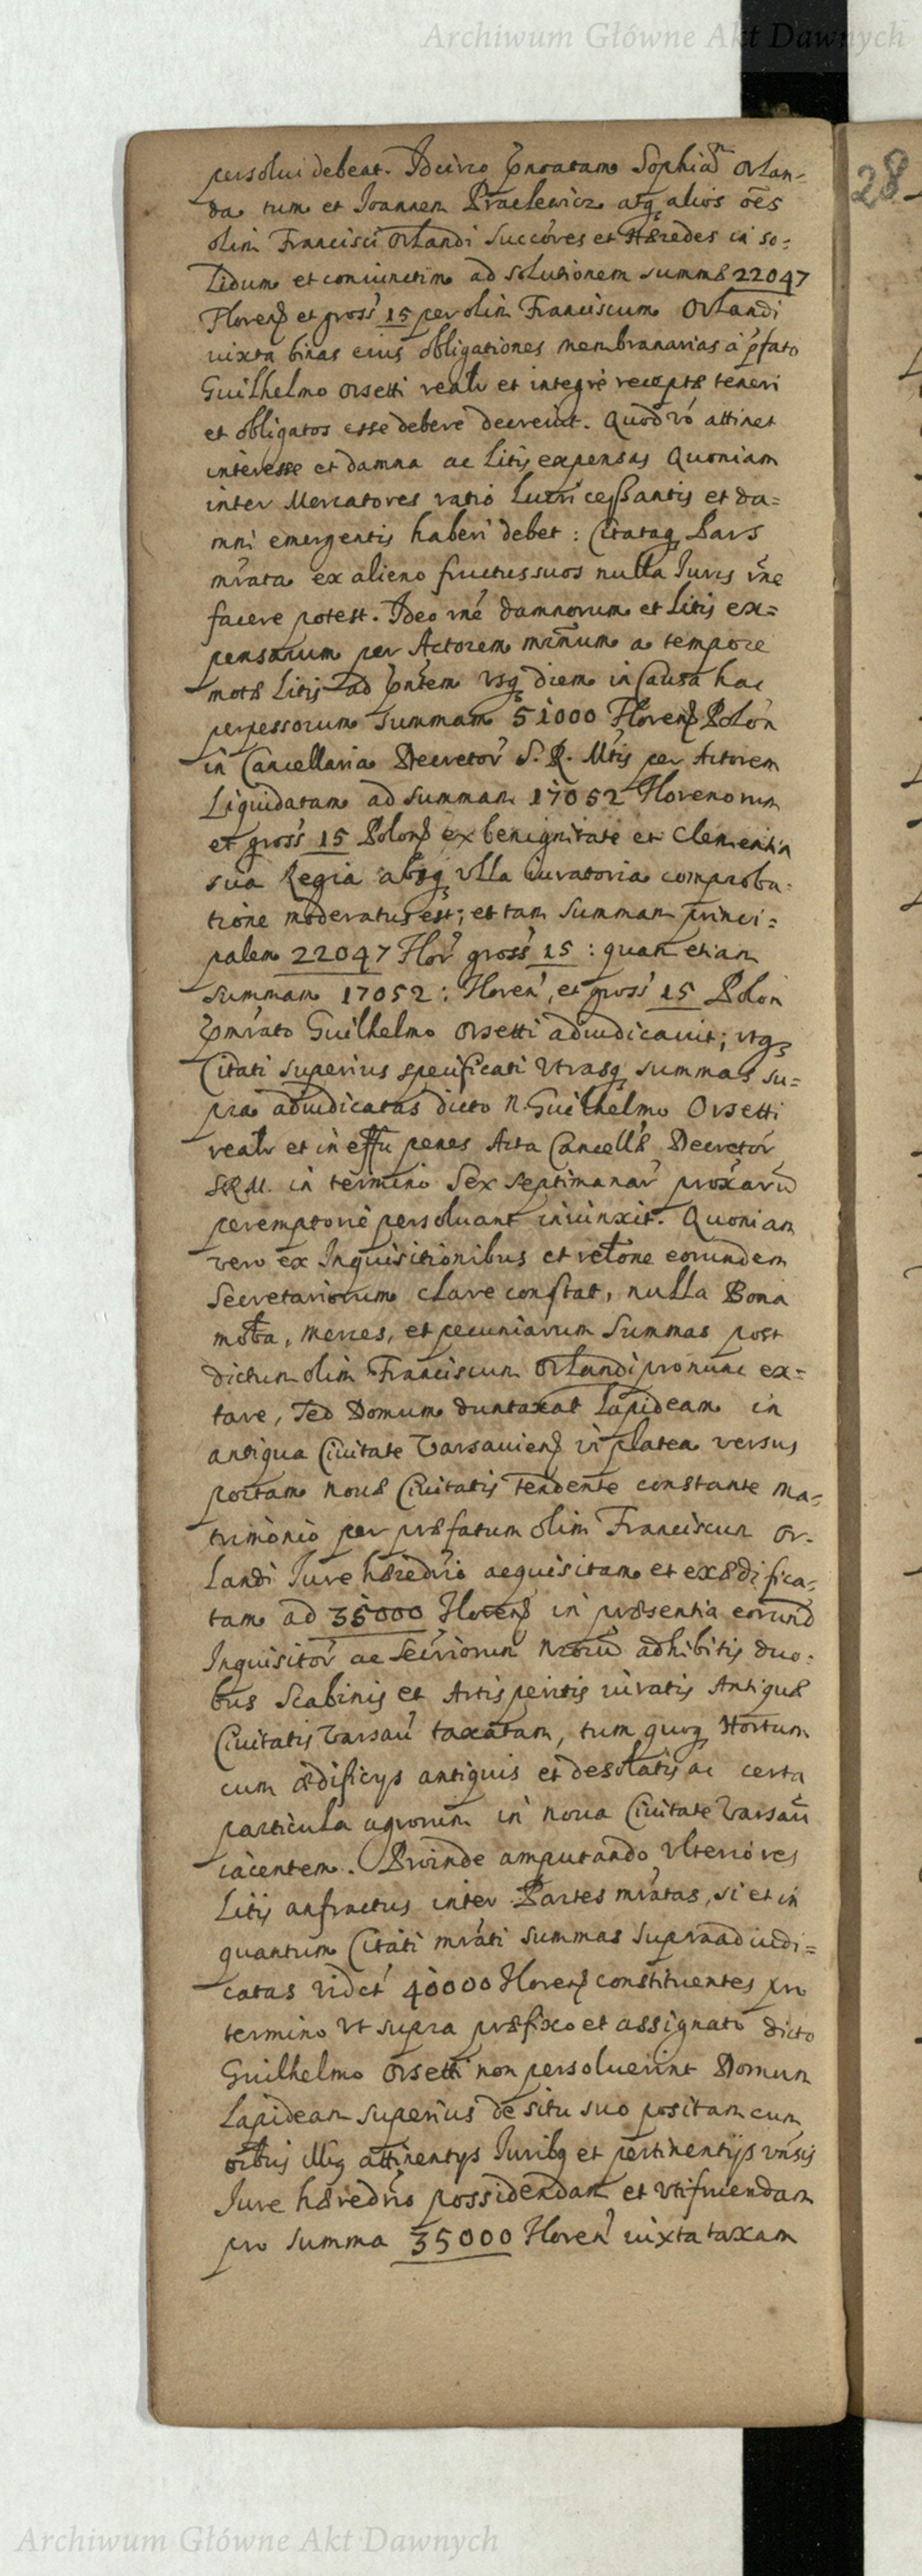 Archiwum Główne Akt Dawnych
persolui debeat. Idcirco Sophiam Orlan-
da tum et Joannem Praelewicz atq alios oēs
olim Francisci Orlandi Succōres et Hæredes in so=
lidum et coniunctim ad solutionem summæ 22047
Floren et gross 15 per olim Franciscum Orlandi
iuxta binas eius obligationes membranarias à pfato
Guilhelmo Orsetti realr et integrè receptæ teneri
et obligatos esse debere decreuit. Quod vō attinet
interesse et damna ac Litis expensas Quoniam
inter Mercatores ratio lucri cessantis et da=
mni emergentis haberi debet: Citataq Pars
mrata ex alieno fructus suos nulla Juris rne
facere potest. Ideo rne damnorum et Litis ex=
pensarum per Actorem a tempore
motæ Litis ad pntem vsq diem in Causa hac
perpessorum summam 51000 Floren Polon
in Cancellaria Decretor S. R. Mtis per Actorem
Liquidatam ad summam 17052 Florenorum
et gross 15 Polon ex benignitate et Clementia
sua Regia absq vlla iuratoria comproba-
tione moderatus est; et tam summam princi=
palem 22047 Flor gross 15: quam etiam
summam 17052: Floren, et gross 15 Polon
pmrato Guilhelmo Orsetti adiudicauit; vtq
Citati superius specificati vtrasq summas su=
pra adiudicatas dicto N. Guilhelmo Orsetti
realr et in effu penes Acta Cancellæ Decretor
SRM. in termino Sex septimanar proxarū
peremptoriè persoluant iniunxit. Quoniam
vero ex Inquisitionibus et relone eorundem
Secretariorum clare constat, nulla Bona
mobta, merces, et pecuniarum summas post
dictum olim Franciscum Orlandi pro nunc ex=
tare, sed Domum duntaxat lapideam in
antiqua Ciuitate Varsauien in platea versus
portam nouæ Ciuitatis tendente constante ma-
trimonio per præfatum olim Franciscum Or-
landi Jure hæredrio acquisitam et exædifica-
tam ad 35000 Floren in præsentia eorund
Inquisitor ac Secriorum nrorū adhibitis duo-
bus Scabinis et Artis peritis iuratis Antiquæ
Ciuitatis Varsau taxatam, tum quoq Hortum
cum ædificys antiquis et desolatis ac certa
particula agrorum in noua Ciuitate Varsau
iacentem. Proinde amputando vlteriores
Litis anfractus inter Partes mratas, si et in
quantum Citati mrati summas supra adiudi=
catas videt 40000 Floren constituentes pro
termino vt supra præfixo et assignato dicto
Guilhelmo Orsetti non persoluerint Domum
Lapideam superius de situ suo positam cum
oibus illiq attinentys Juribq et pertinentijs vnsis
Jure hæredrio possidendam et vtifruendam
pro summa 35000 Floren iuxta taxam
28
Archiwum Główne Akt Dawnych